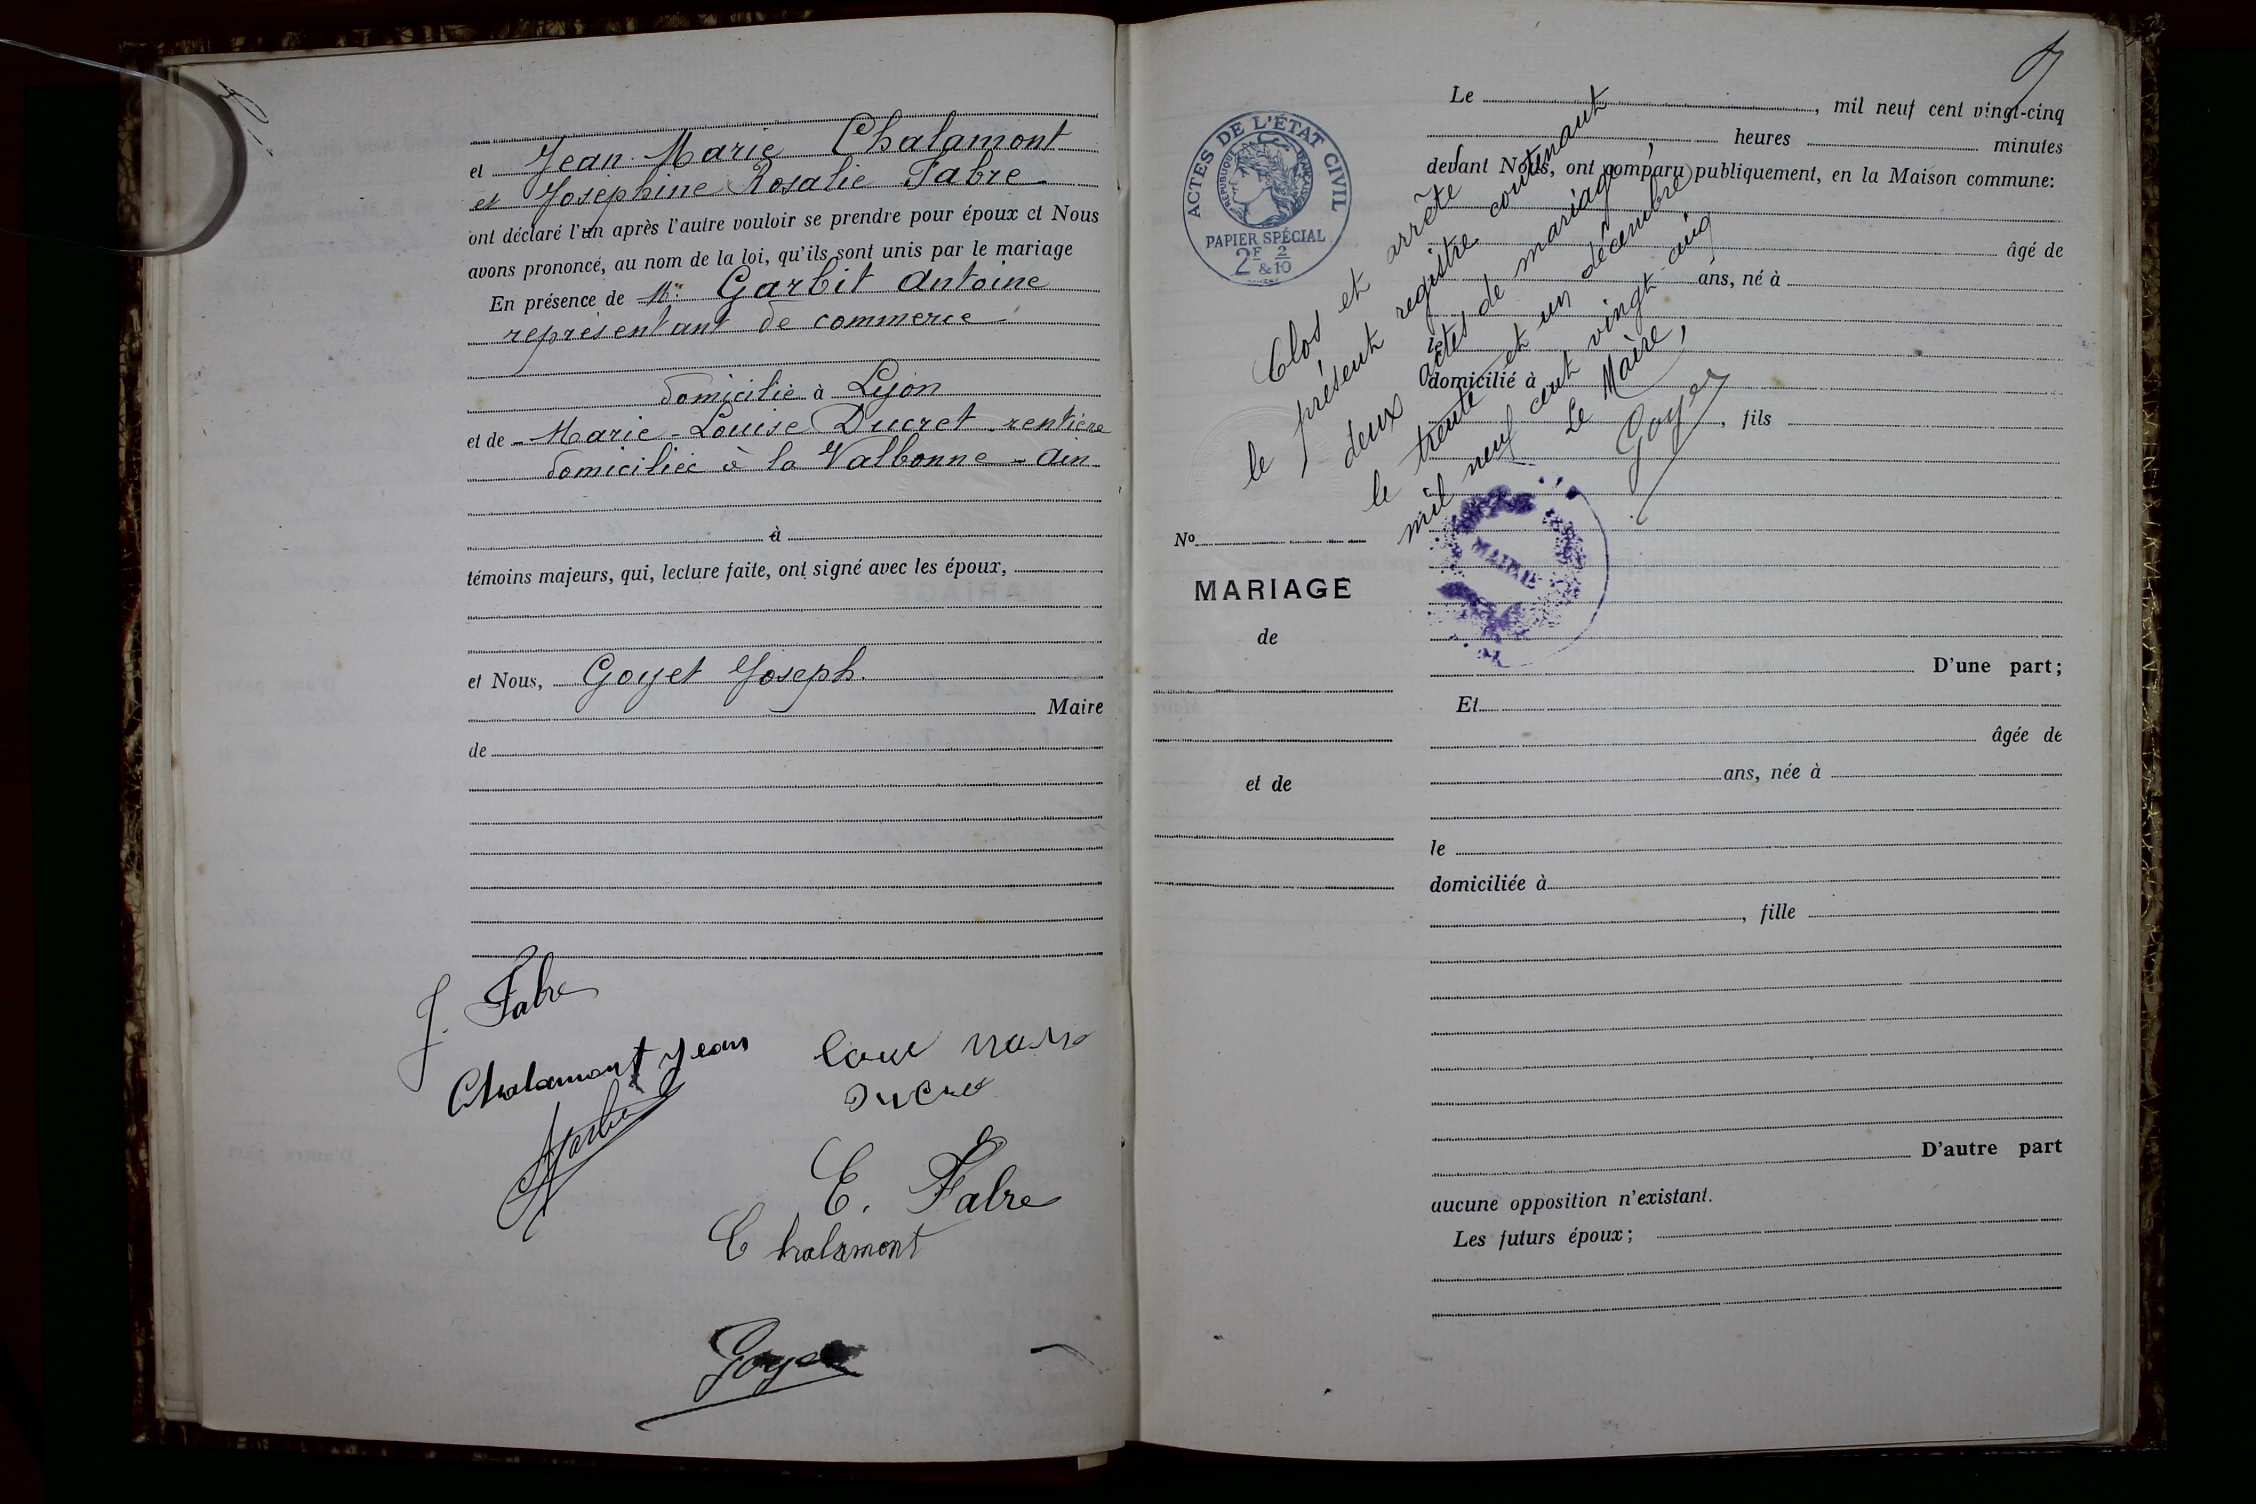 et Jean Marie Chalamont
et Joséphine Rosalie Fabre
ont déclaré l'un après l'autre vouloir se prendre pour époux et Nous
avons prononcé, au nom de la loi, qu'ils sont unis par le mariage
En présence de Mr Garbit Antoine
représentant de commerce
domicilié à Lyon
et de Marie-Louise Ducret rentière
domiciliée à la Valbonne - Ain
à
témoins majeurs, qui, lecture faite, ont signé avec les époux,
et Nous, Goyet Joseph.
Maire
de
J. Fabre
Chalamont Jean
Garbit
Ducre
E. Fabre
Chalamont
Goyet
ACTES DE L'ÉTAT CIVIL
RÉPUBLIQUE FRANÇAISE
PAPIER SPÉCIAL
2F & 2/10
Clos et arrêté
le présent registre contenant
deux actes de mariage,
le trente et un décembre
mil neuf cent vingt-cinq
Le Maire,
Goyet
MAIRIE
Le , mil neuf cent vingt-cinq
heures minutes
devant Nous, ont comparu publiquement, en la Maison commune:
âgé de
ans, né à
le
domicilié à
, fils
No
MARIAGE
de
et de
D'une part;
Et
âgée de
ans, née à
le
domiciliée à
, fille
D'autre part
aucune opposition n'existant.
Les futurs époux;